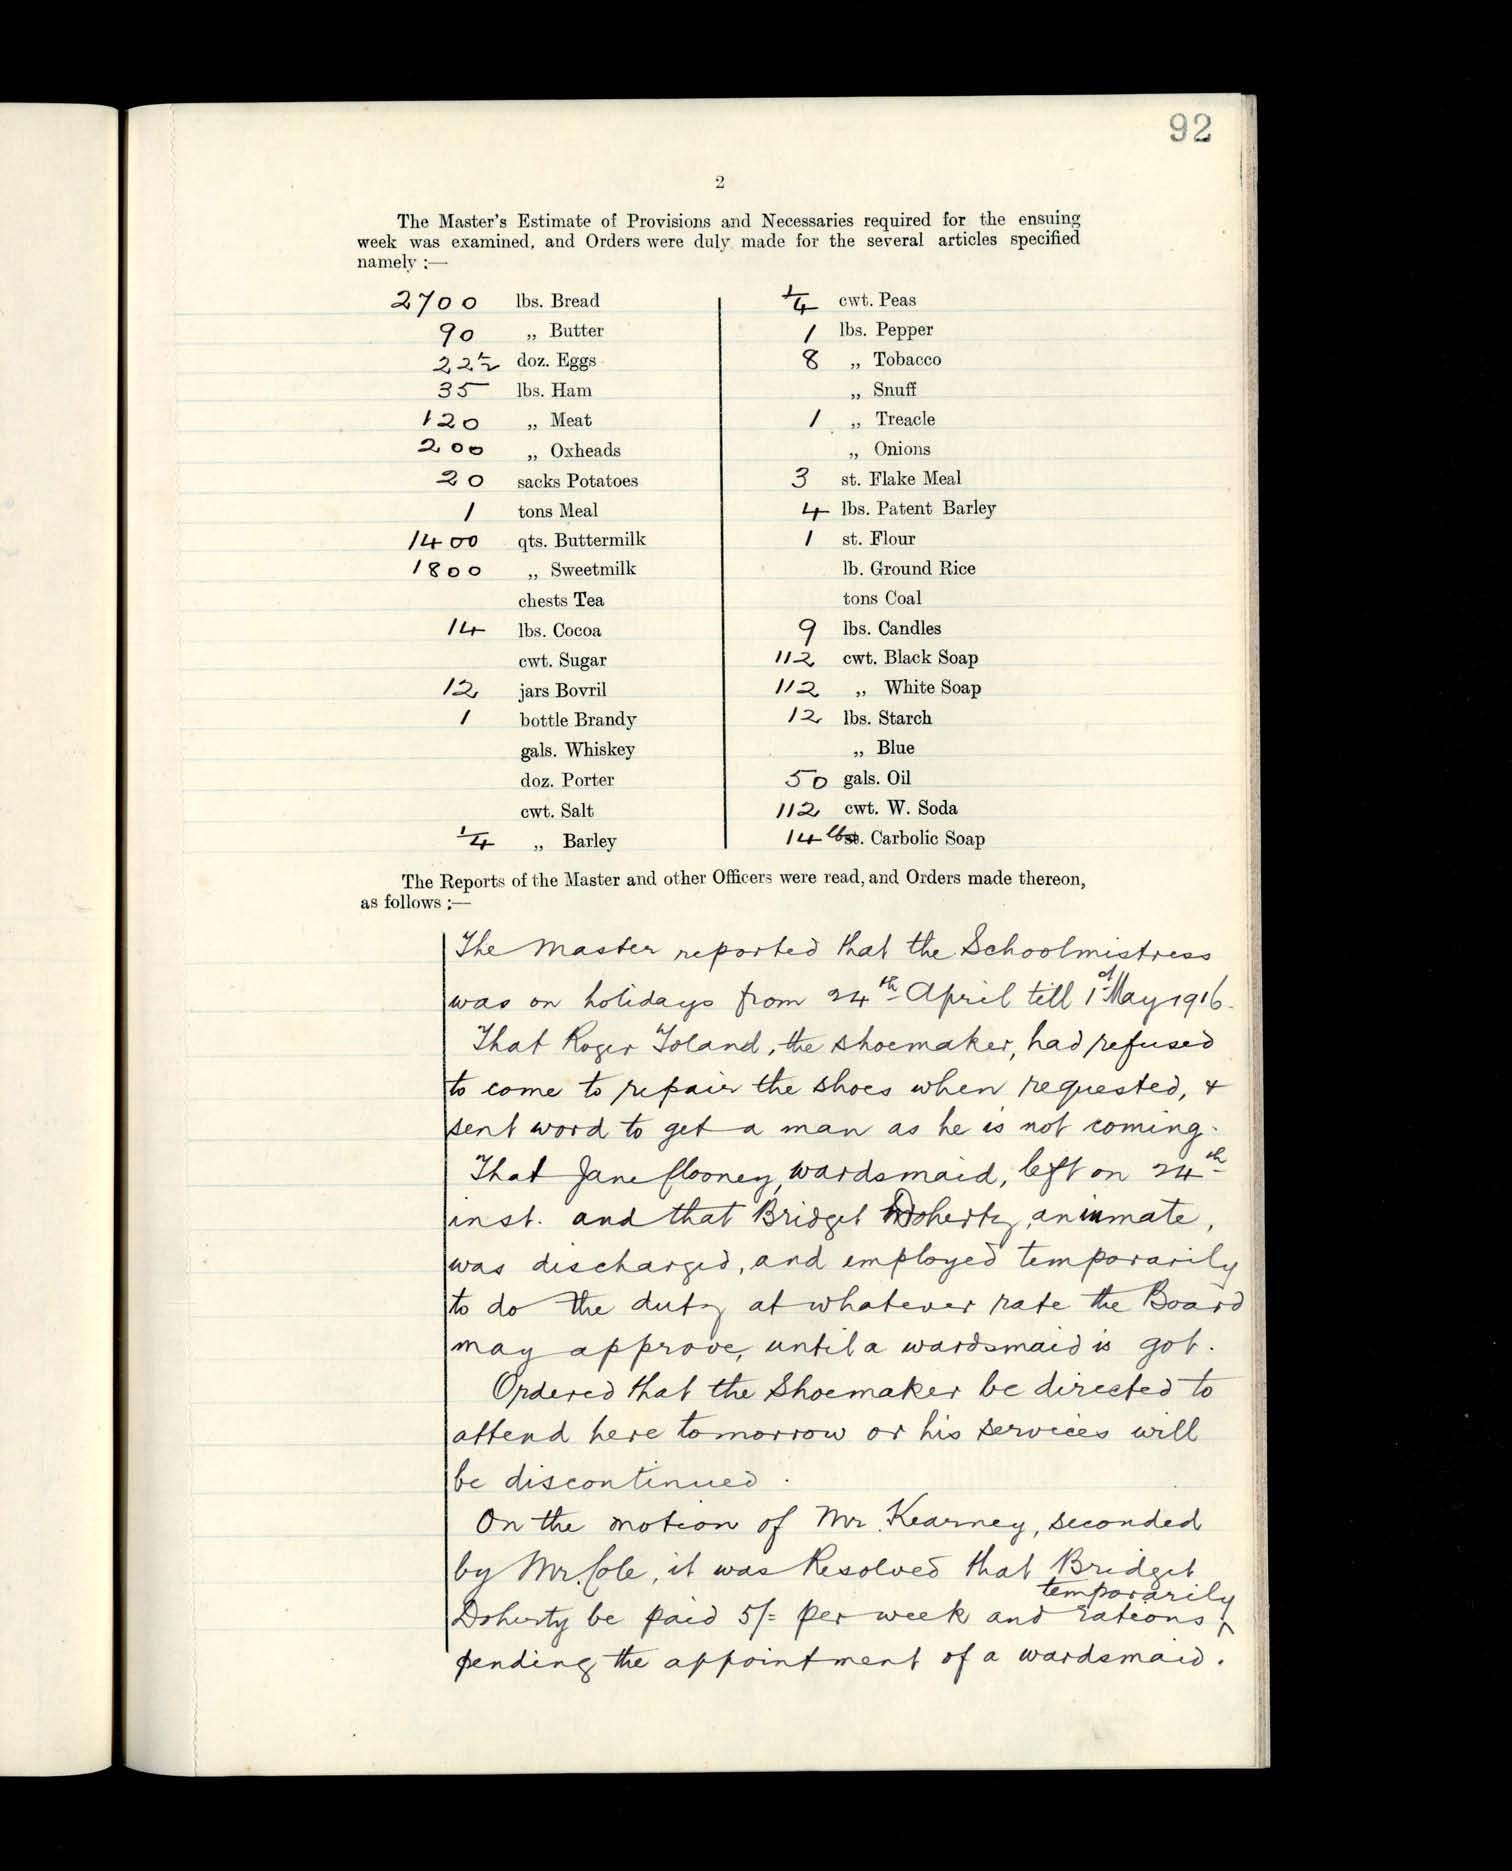 92
2
The Master's Estimate of Provisions and Necessaries required for the ensuing
week was examined, and Orders were duly made for the several articles specified
namely :—
2700 lbs. Bread
90 „ Butter
22½ doz. Eggs
35 lbs. Ham
120 „ Meat
200 „ Oxheads
20 sacks Potatoes
1 tons Meal
1400 qts. Buttermilk
1800 „ Sweetmilk
chests Tea
14 lbs. Cocoa
cwt. Sugar
12 jars Bovril
1 bottle Brandy
gals. Whiskey
doz. Porter
cwt. Salt
¼ „ Barley
¼ cwt. Peas
1 lbs. Pepper
8 „ Tobacco
„ Snuff
1 „ Treacle
„ Onions
3 st. Flake Meal
4 lbs. Patent Barley
1 st. Flour
lb. Ground Rice
tons Coal
9 lbs. Candles
112 cwt. Black Soap
112 „ White Soap
12 lbs. Starch
„ Blue
50 gals. Oil
112 cwt. W. Soda
14 lbs. Carbolic Soap
The Reports of the Master and other Officers were read, and Orders made thereon,
as follows :—
The Master reported that the Schoolmistress
was on holidays from 24th April till 1st May 1916.
That Roger Toland, the shoemaker, had refused
to come to repair the shoes when requested, &
sent word to get a man as he is not coming.
That Jane , wardsmaid, left on 24th
inst. and that Bridget Doherty, an inmate,
was discharged, and employed temporarily
to do the duty at whatever rate the Board
may approve, until a wardsmaid is got.
Ordered that the Shoemaker be directed to
attend here tomorrow or his services will
be discontinued.
On the motion of Mr. Kearney, seconded
by Mr. Cole, it was Resolved that Bridget
temporarily
Doherty be paid 5/= per week and rations ^
pending the appointment of a wardsmaid.